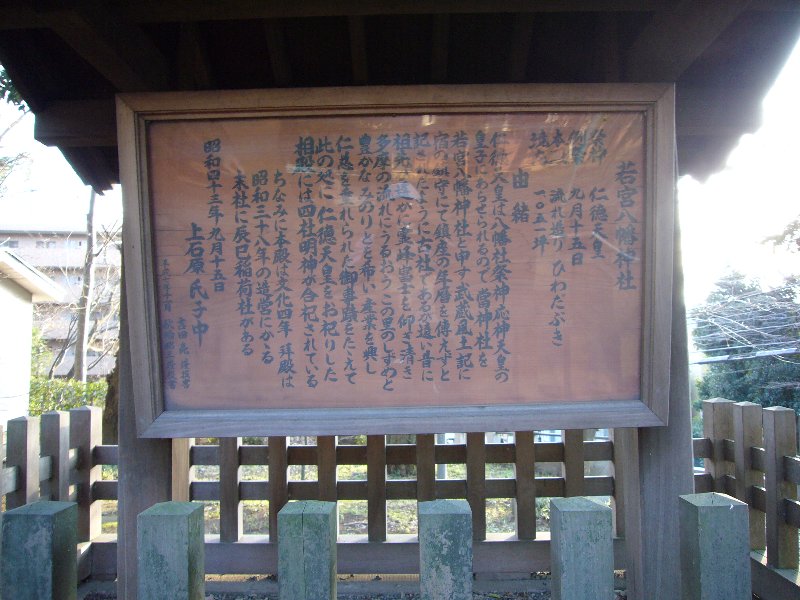 若宮八幡神社
祭神 仁徳天皇
例祭 九月十五日
本殿 流れ造り ひわだぶき
境内 一〇五一坪
由緒
仁徳天皇は八幡社祭神応神天皇の
皇子にあらせられるので當神社を
若宮八幡神社と申す 武蔵風土記に
宿の鎮守にて鎮座の年暦を傳えずと
記されたように古社であるが遠い昔に
祖先
霊峰富士を仰ぎ 清き
多摩の流れにうるおうこの里のしずめと
豊かなみのりとを希い 産業を興し
仁慈を垂れられた御事蹟をたゝえて
此の処に 仁徳天皇をお祀りした
相殿には四社明神が合祀されている
ちなみに本殿は文化四年 拝殿は
昭和三十八年の造営にかゝる
末社に辰巳稲荷社がある
昭和四十三年 九月十五日
上石原 氏子中